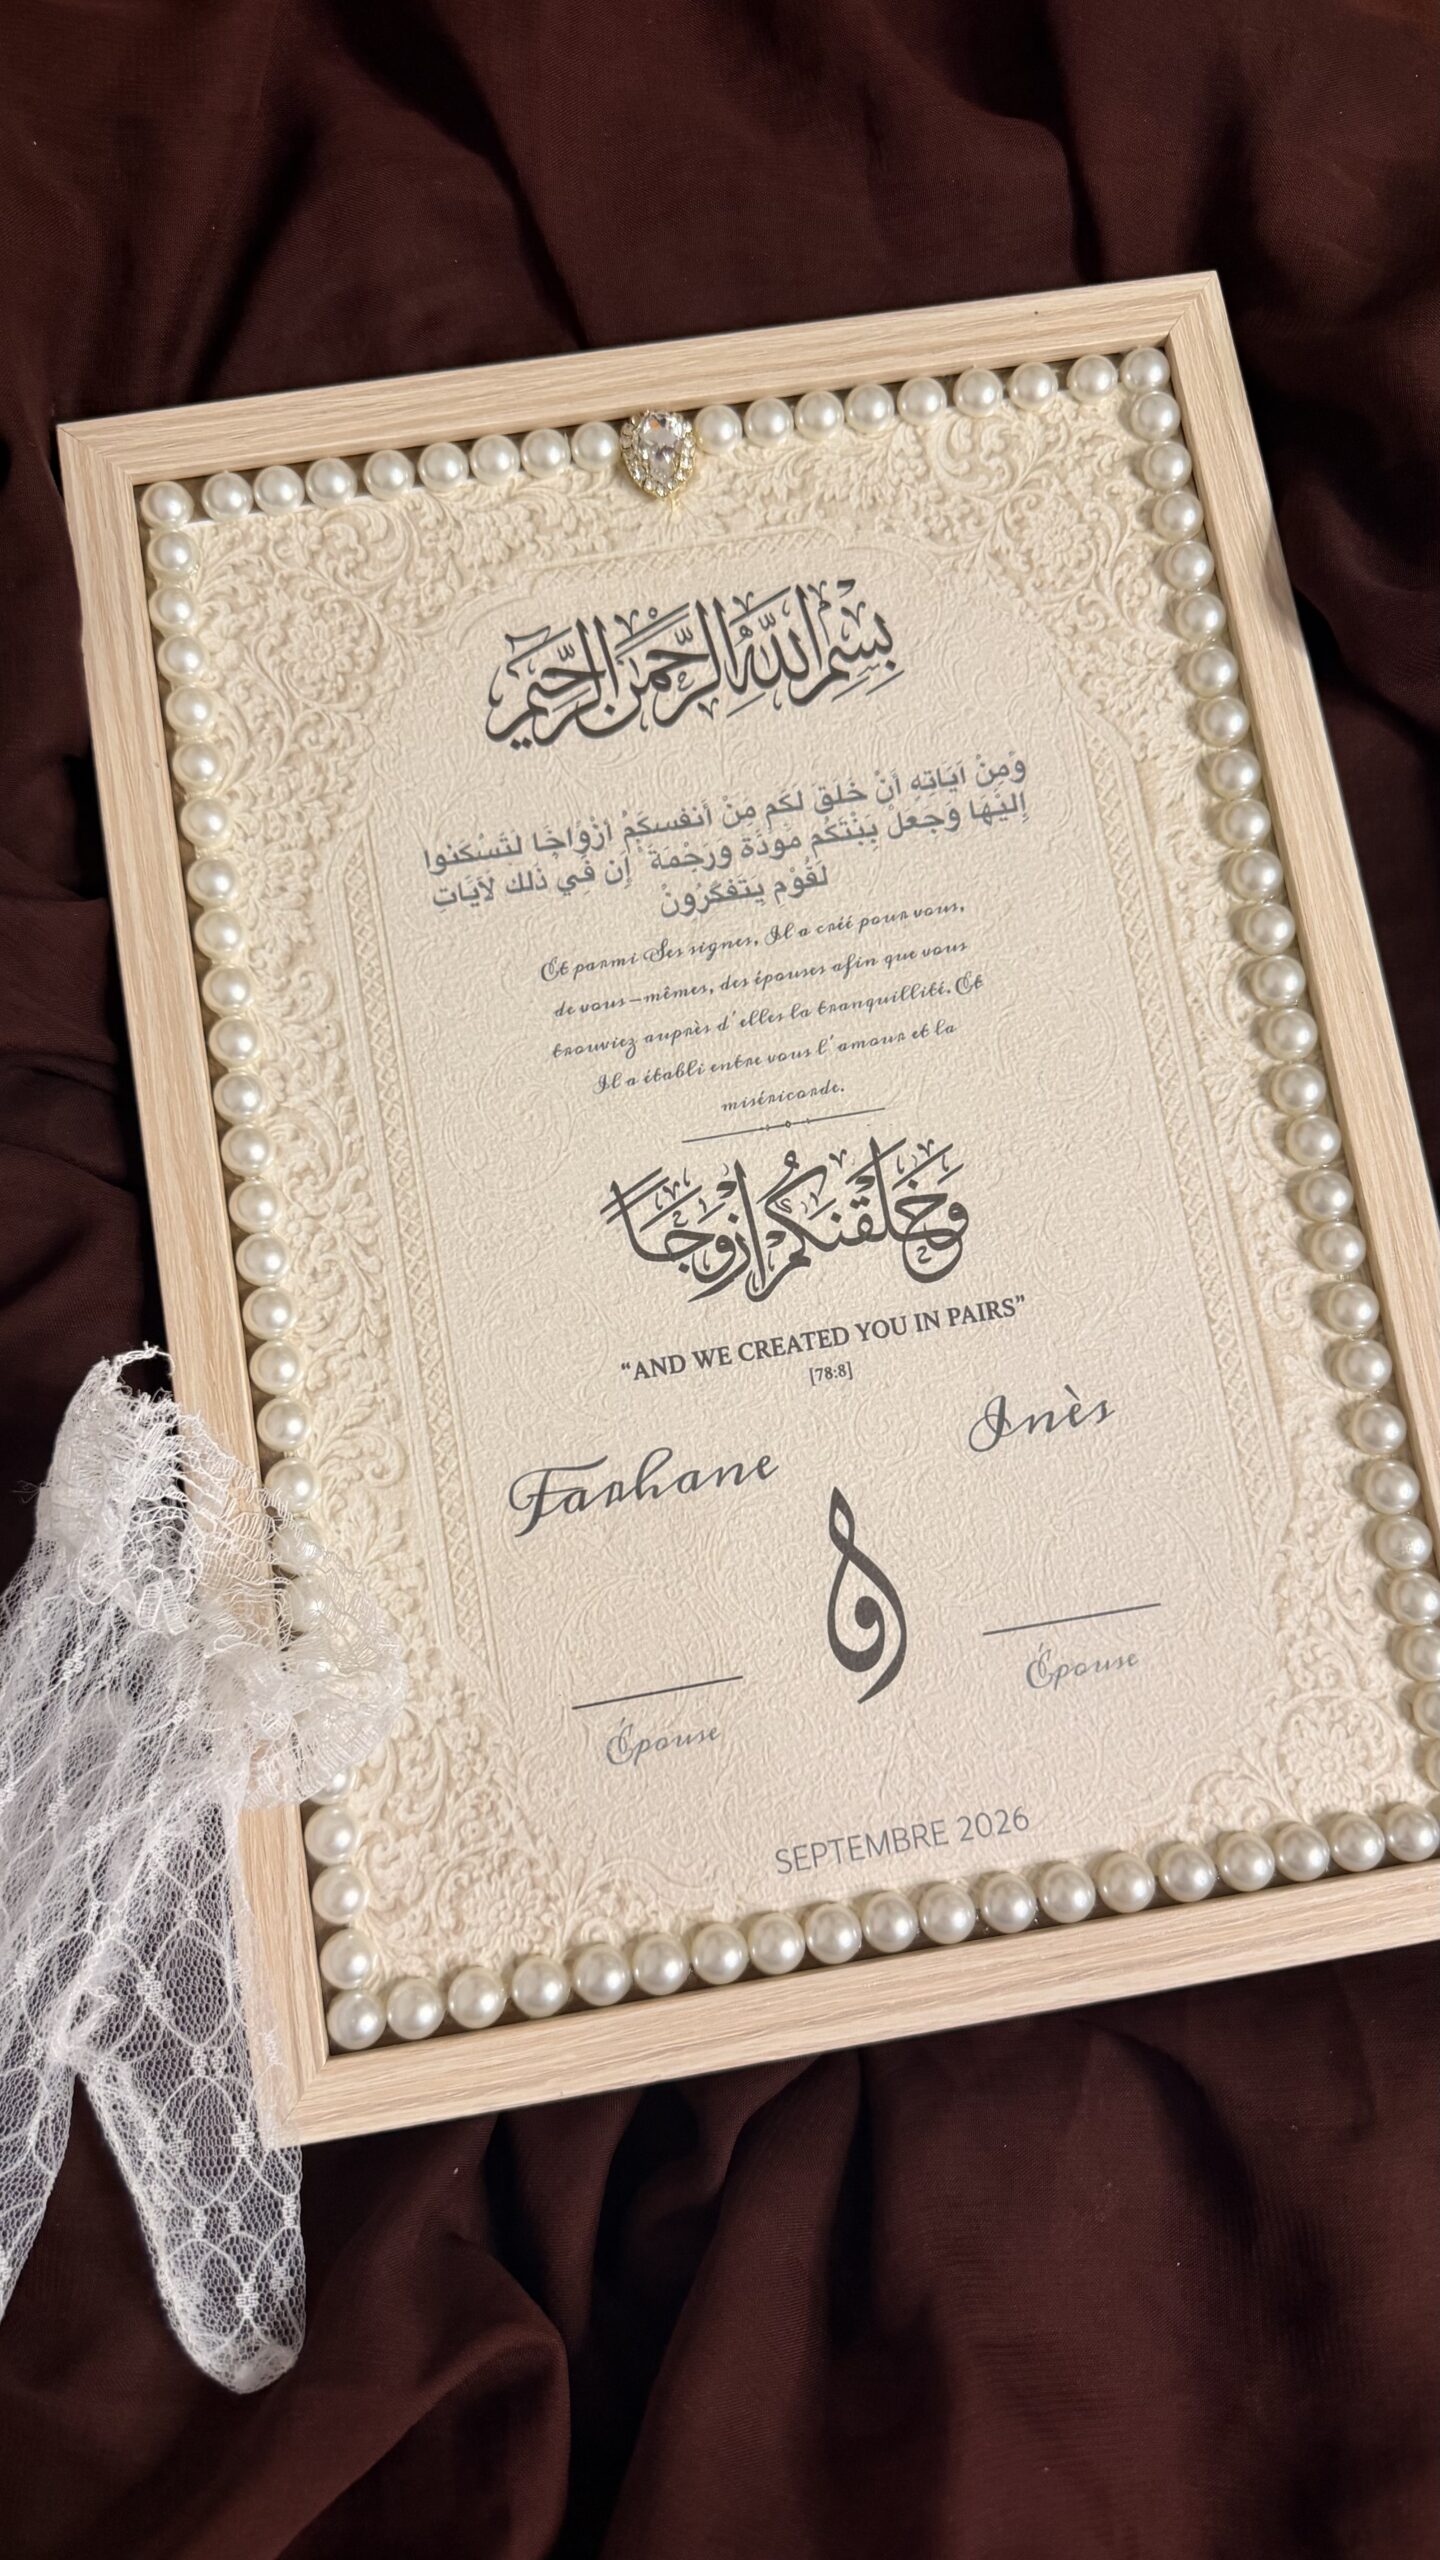 بِسْمِ اللَّهِ الرَّحْمَٰنِ الرَّحِيمِ
وَمِنْ آيَاتِهِ أَنْ خَلَقَ لَكُم مِنْ أَنفسكُمْ أزْوَاجًا لتَسْكنوا
إليْهَا وَجَعلَ بَيْنَكُم مَودَّة وَرَحْمَة إن فِي ذَلك لَآيَاتِ
لقَوْم يتَفكّرُونْ
Et parmi Ses signes, Il a créé pour vous,
de vous-mêmes, des épouses afin que vous
trouviez auprès d'elles la tranquillité. Et
Il a établi entre vous l'amour et la
miséricorde.
وَخَلَقْنَكُمْ أَزْوَجًا
“AND WE CREATED YOU IN PAIRS”
[78:8]
Farhane
Inès
و
Épouse
Épouse
SEPTEMBRE 2026